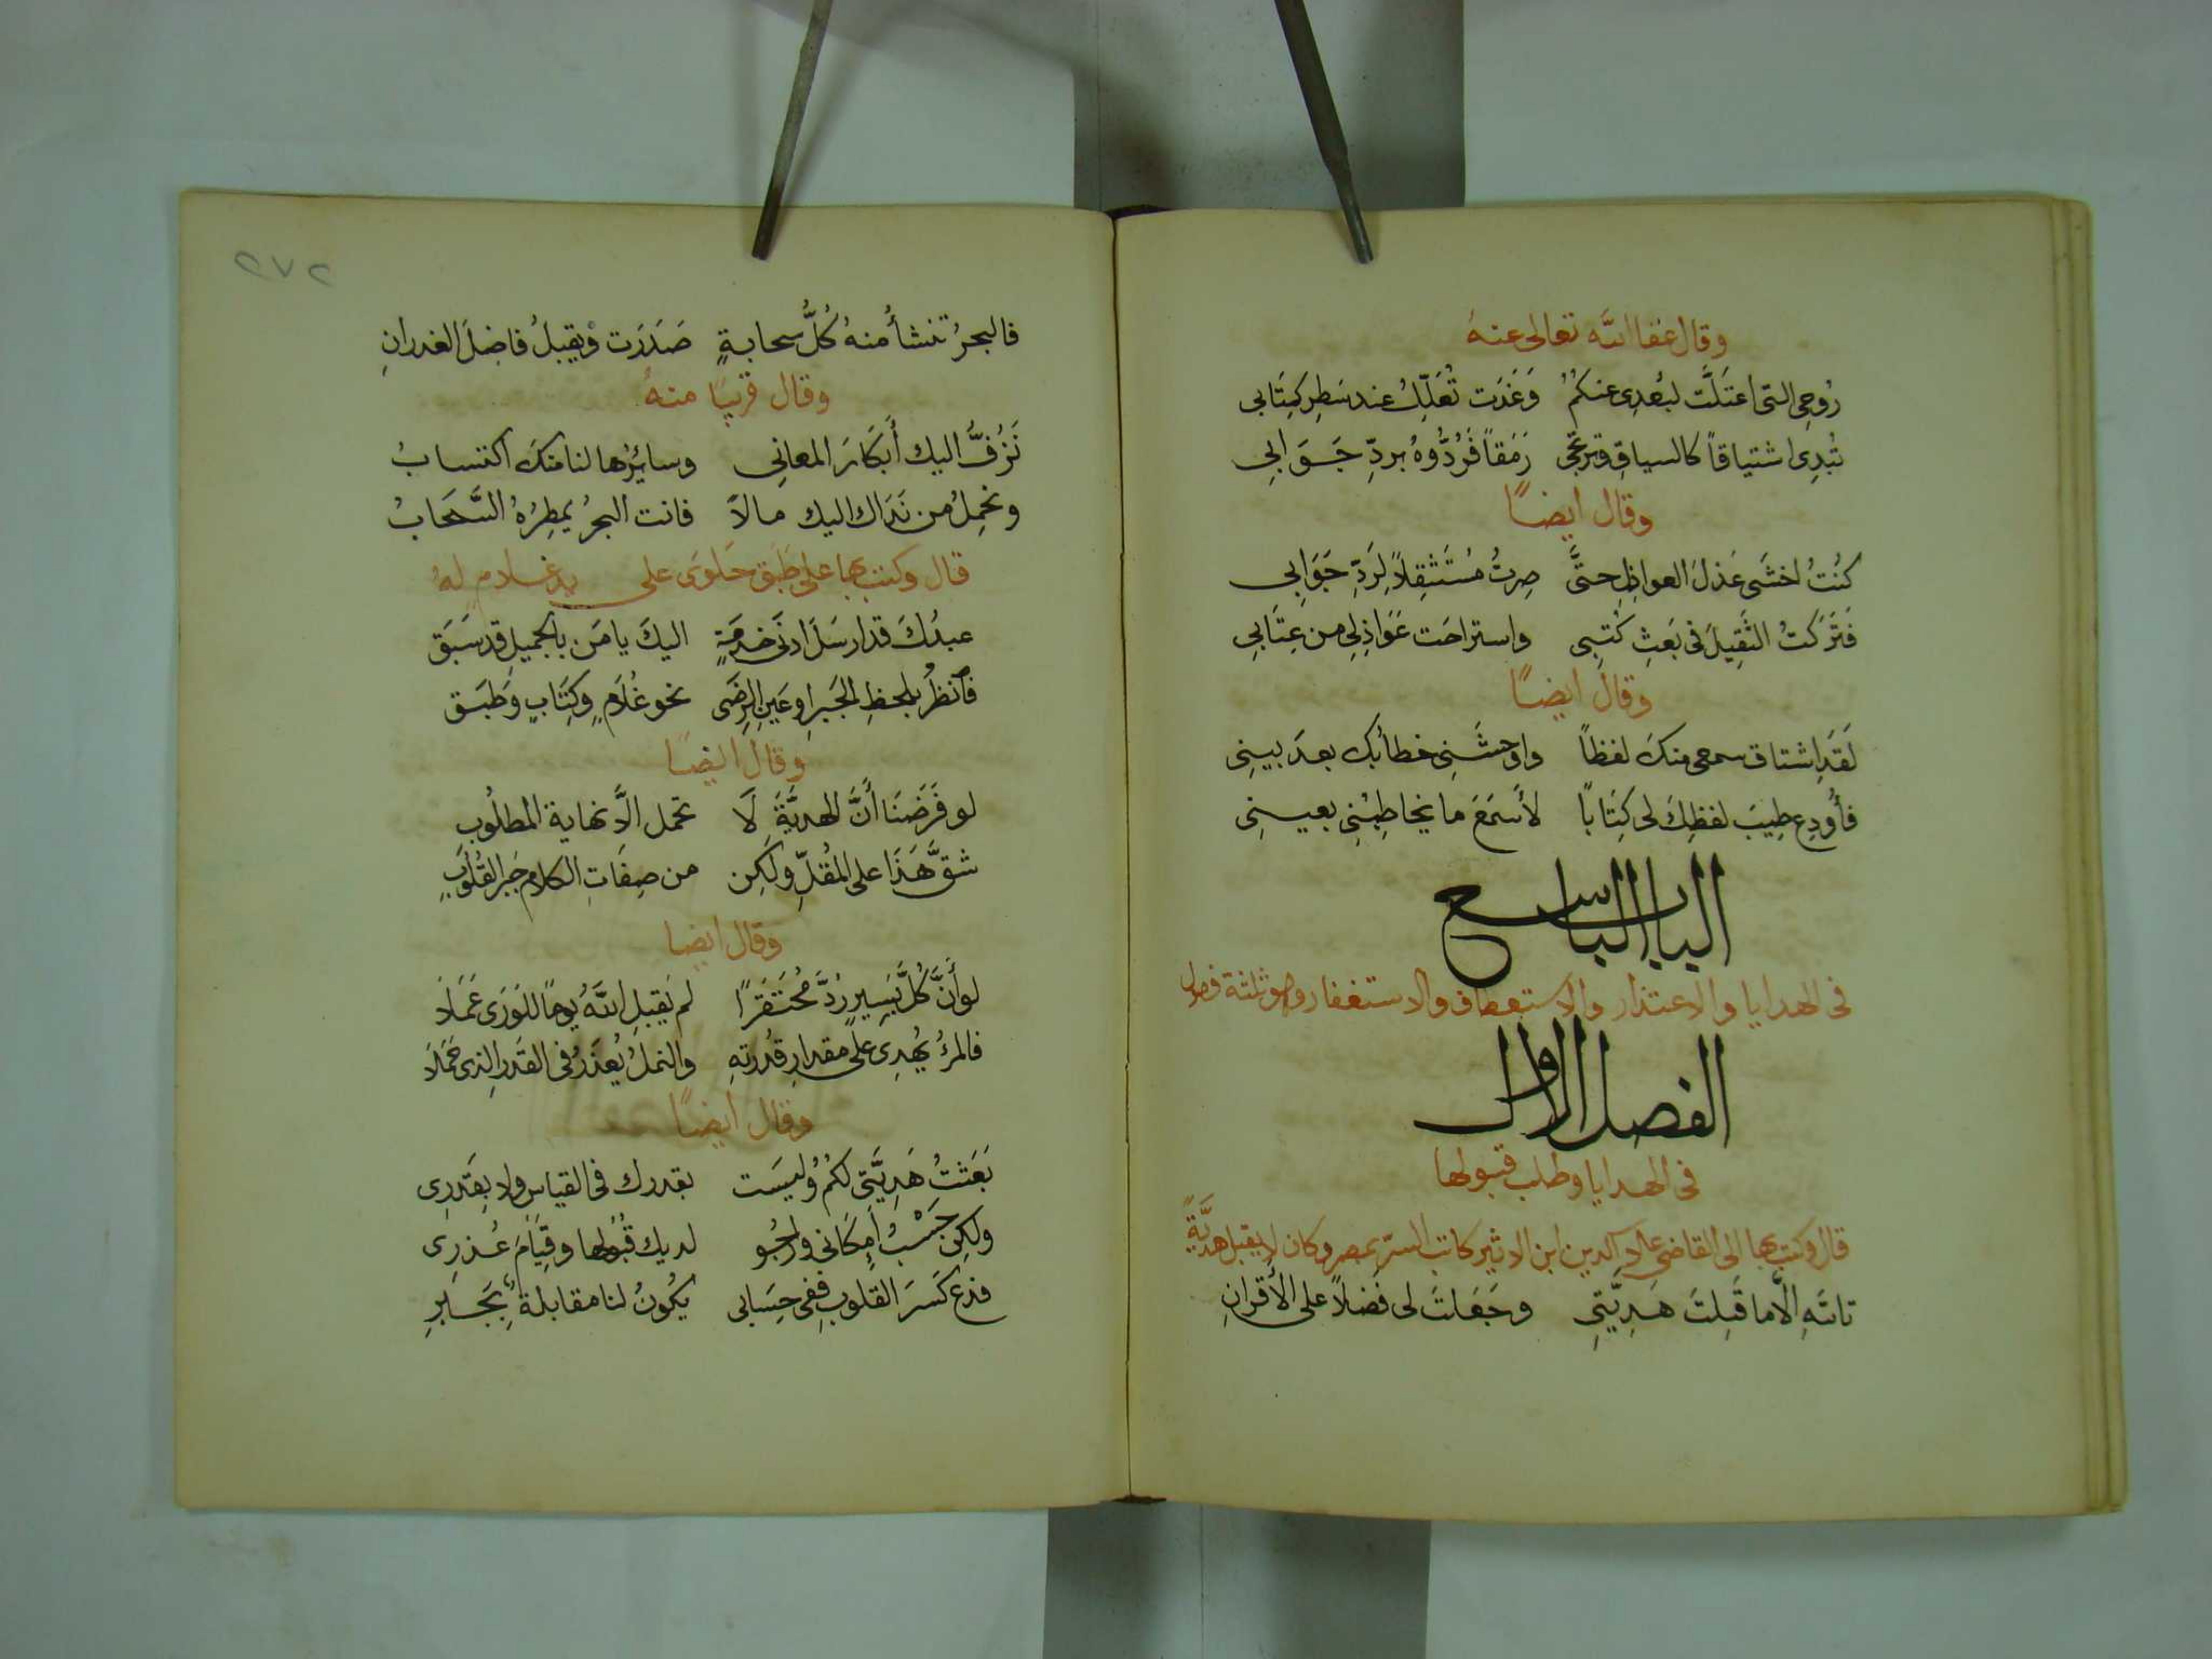 وقال عفا الله تعالى عنه
رُوحِي التي اعتَلَّت لبُعدِى عنكم وَغَدَت تُعَلَّلُ عند سَطرِ كِتَابى
تُبْدِى اشتياقاً كالسياقِ وترتجى رَمَقاً فَرُدُّوهُ بردِّ جَوَابى
وقال ايضاً
كنُتُ اخشَى عَذلَ العواذِلِ حتَّى صِرتُ مُستَثقِلاً لِرَدِّ جَوَابى
فَتَركتُ الثَّقِيلَ فى بَعثِ كُتبِى واستراحَت عَوَاذِلى من عِتَابى
وقال ايضاً
لَقَدِ اشتاق سمعى منكَ لفظاً واوحشَنِى خطابُك بعدَ بينِى
فأُودِع طِيبَ لفظِكَ لى كِتَاباً لأسَمعَ ما يخاطِبُنِى بعينِى
الباب التاسع
فى الهدايا والاعتذار والاستعطاف والاستغفار وهو ثلثة فصول
الفصل الاول
فى الهدايا وطلب قبولها
قال وكتب بها الى القاضى علاء الدين ابن الاثير كاتب السرّ بمصر وكان لا يقبل هديَّةً
تاللهِ الَّا ما قَبِلتَ هَدِيَّتِى وجَعَلتَ لى فَضلاً على الأَقرانِ
٢٧٢
فالبحرُ تنشأُ منهُ كُلُّ سحابةٍ صَدَرَت ويقبلُ فاضلَ الغدرانِ
وقال قريبًا منهُ
نَزُفُّ اليك أبكَارَ المعانِى وسائِرُها لنا منكَ اكتسابُ
ونحمِلُ من نَدَاك اليك مالاً فانت البحرُ يمطِرُهُ السَّحَابُ
قال وكتب بها على طَبَق حَلوَى على يد غلام لهُ
عبدُكَ قد ارسَلَ ادنَى خدمَةٍ اليكَ يا مَن بالجميلِ قد سَبَق
فانظُر بلحظِ الجَبرِ او عَينِ الرِضَى نحو غُلَامٍ وكِتَابٍ وطَبَق
وقال ايضًا
لو فَرَضنَا أنَّ الهديَّةَ لَا تحمل الَّا نهاية المطلُوبِ
شقَّ هَذَا على المُقلِّ ولَكِن من صِفَاتِ الكلام جَبر القُلُوبِ
وقال ايضا
لو أنَّ كُلَّ يَسِيرٍ رُدَّ مُحتَقَرًا لم يَقبلِ اللهُ يومًا للوَرَى عَمَلَا
فالمرءُ يُهدِى على مقدارِ قُدرَتهِ والنملُ يُعذَرُ فى القَدرِ الذى حَمَلَا
وقال ايضًا
بَعَثتُ هَدِيَّتِى لكم وليسَت بقدرك فى القياس ولا بِقَدرِى
ولكِن حَسْبُ امِكَانى وارجُو لديك قُبُولها وقِيَامَ عُذرِى
فدَع كَسرَ القلوبِ ففى حِسَابى يكُونُ لنا مقابلةً بِجَبرِ